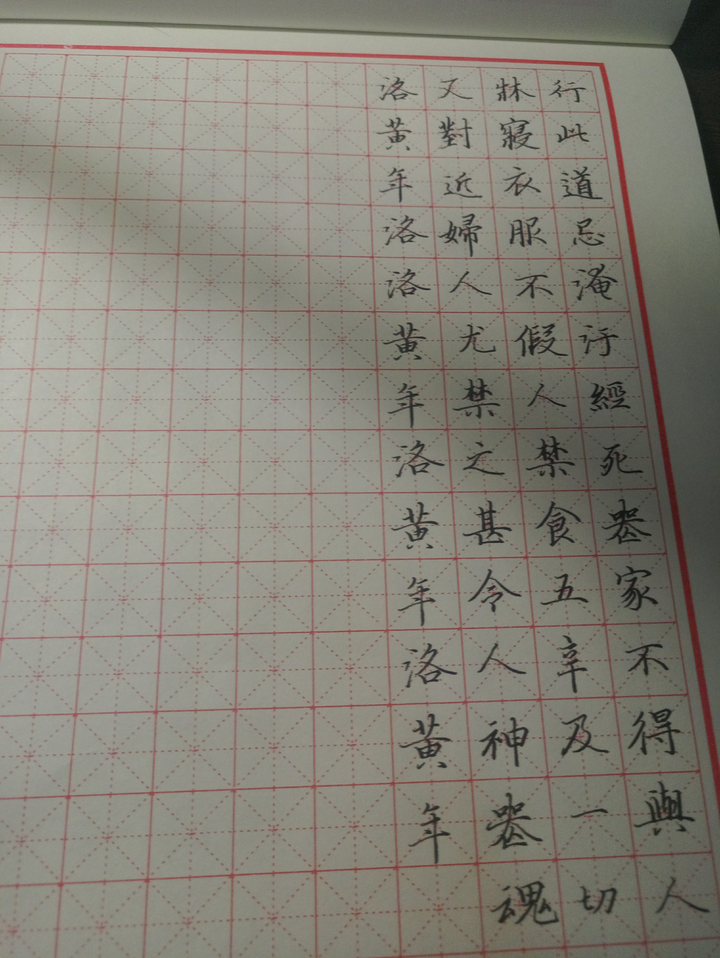 行此道忌淹汙經死喪家不得與人
牀寢衣服不假人禁食五辛及一切
又對近婦人尤禁之甚令人神喪魂
洛黄年洛洛黄年洛黄年洛黄年